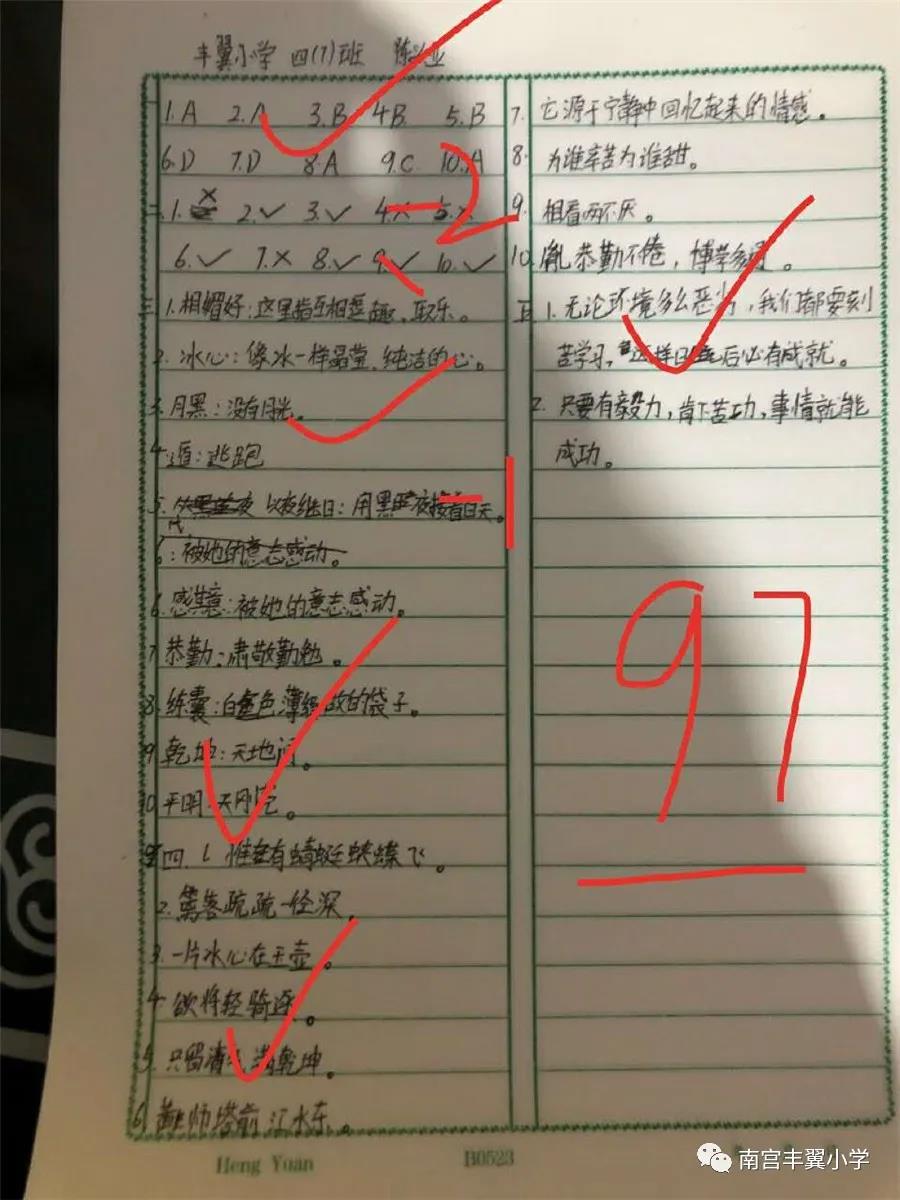 丰翼小学 四(1)班
一 1.A 2.A 3.B 4.B 5.B
6.D 7.D 8.A 9.C 10.A
二.1.× 2.✓ 3.✓ 4.× 5.×
-2
6.✓ 7.× 8.✓ 9.✓ 10.✓
三.1.相媚好:这里指互相逗趣、取乐。
2.冰心:像冰一样晶莹、纯洁的心。
3.月黑:没有月光。
4.遁:逃跑
5. 以夜继日:用黑夜接着白天。
-1
6:被她的意志感动。
6.感其意:被她的意志感动。
7.恭勤:肃敬勤勉。
8.练囊:白色薄绢做的袋子。
9.乾坤:天地间。
10.平明:天刚亮。
四.1. 惟有蜻蜓蛱蝶飞。
2.篱落疏疏一径深。
3.一片冰心在玉壶。
4.欲将轻骑逐。
5.只留清气满乾坤。
6.黄师塔前江水东。
7.它源于宁静中回忆起来的情感。
8.为谁辛苦为谁甜。
9.相看两不厌。
10.胤恭勤不倦,博学多通。
五 1.无论环境多么恶劣,我们都要刻
苦学习,这样日后必有成就。
2.只要有毅力,肯下苦功,事情就能
成功。
97
Heng Yuan B0523
南宫丰翼小学